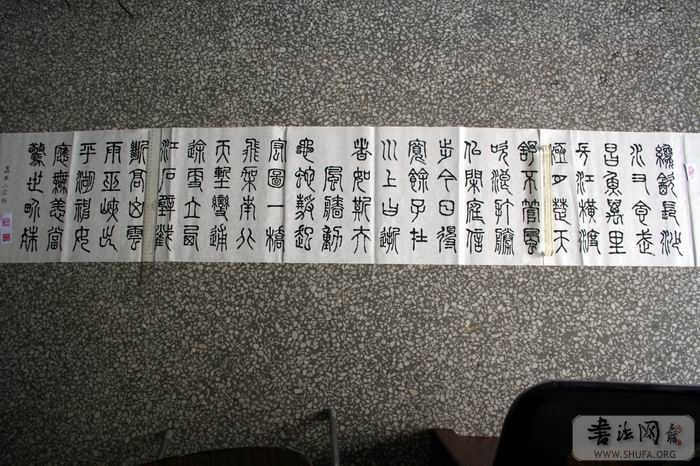 纔飲長沙
水又食武
昌魚萬里
長江橫渡
極目楚天
舒不管風
吹浪打勝
似閒庭信
步今日得
寬餘子在
川上曰逝
者如斯夫
風檣動
龜蛇靜起
宏圖一橋
飛架南北
天塹變通
途更立西
江石壁截
斷山雲
雨峽出
平湖神女
應無恙當
驚世界殊
书法网
WWW.SHUFA.ORG